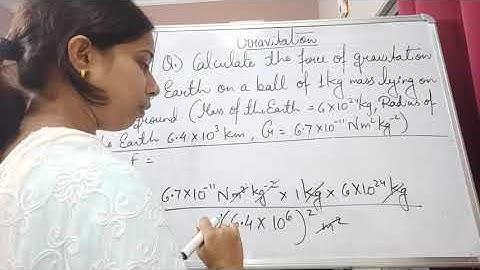 Gravitation
Q.) Calculate the force of gravitation
Earth on a ball of 1kg mass lying on
ground (Mass of the Earth = 6×10²⁴kg, Radius of
the Earth 6.4×10³ km, G = 6.7×10⁻¹¹ Nm²kg⁻²)
F =
6.7×10⁻¹¹ N m² kg⁻² × 1 kg × 6×10²⁴ kg
(6.4×10⁶)² m²